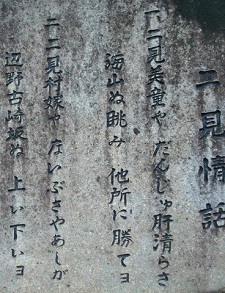 二見情話
一、二見美童や だんじゅ肝清らさ
海山ぬ眺み 他所に勝てヨ
二、二見村嫁や ないぶさやあしが
辺野古崎坂ぬ 上い下いヨ